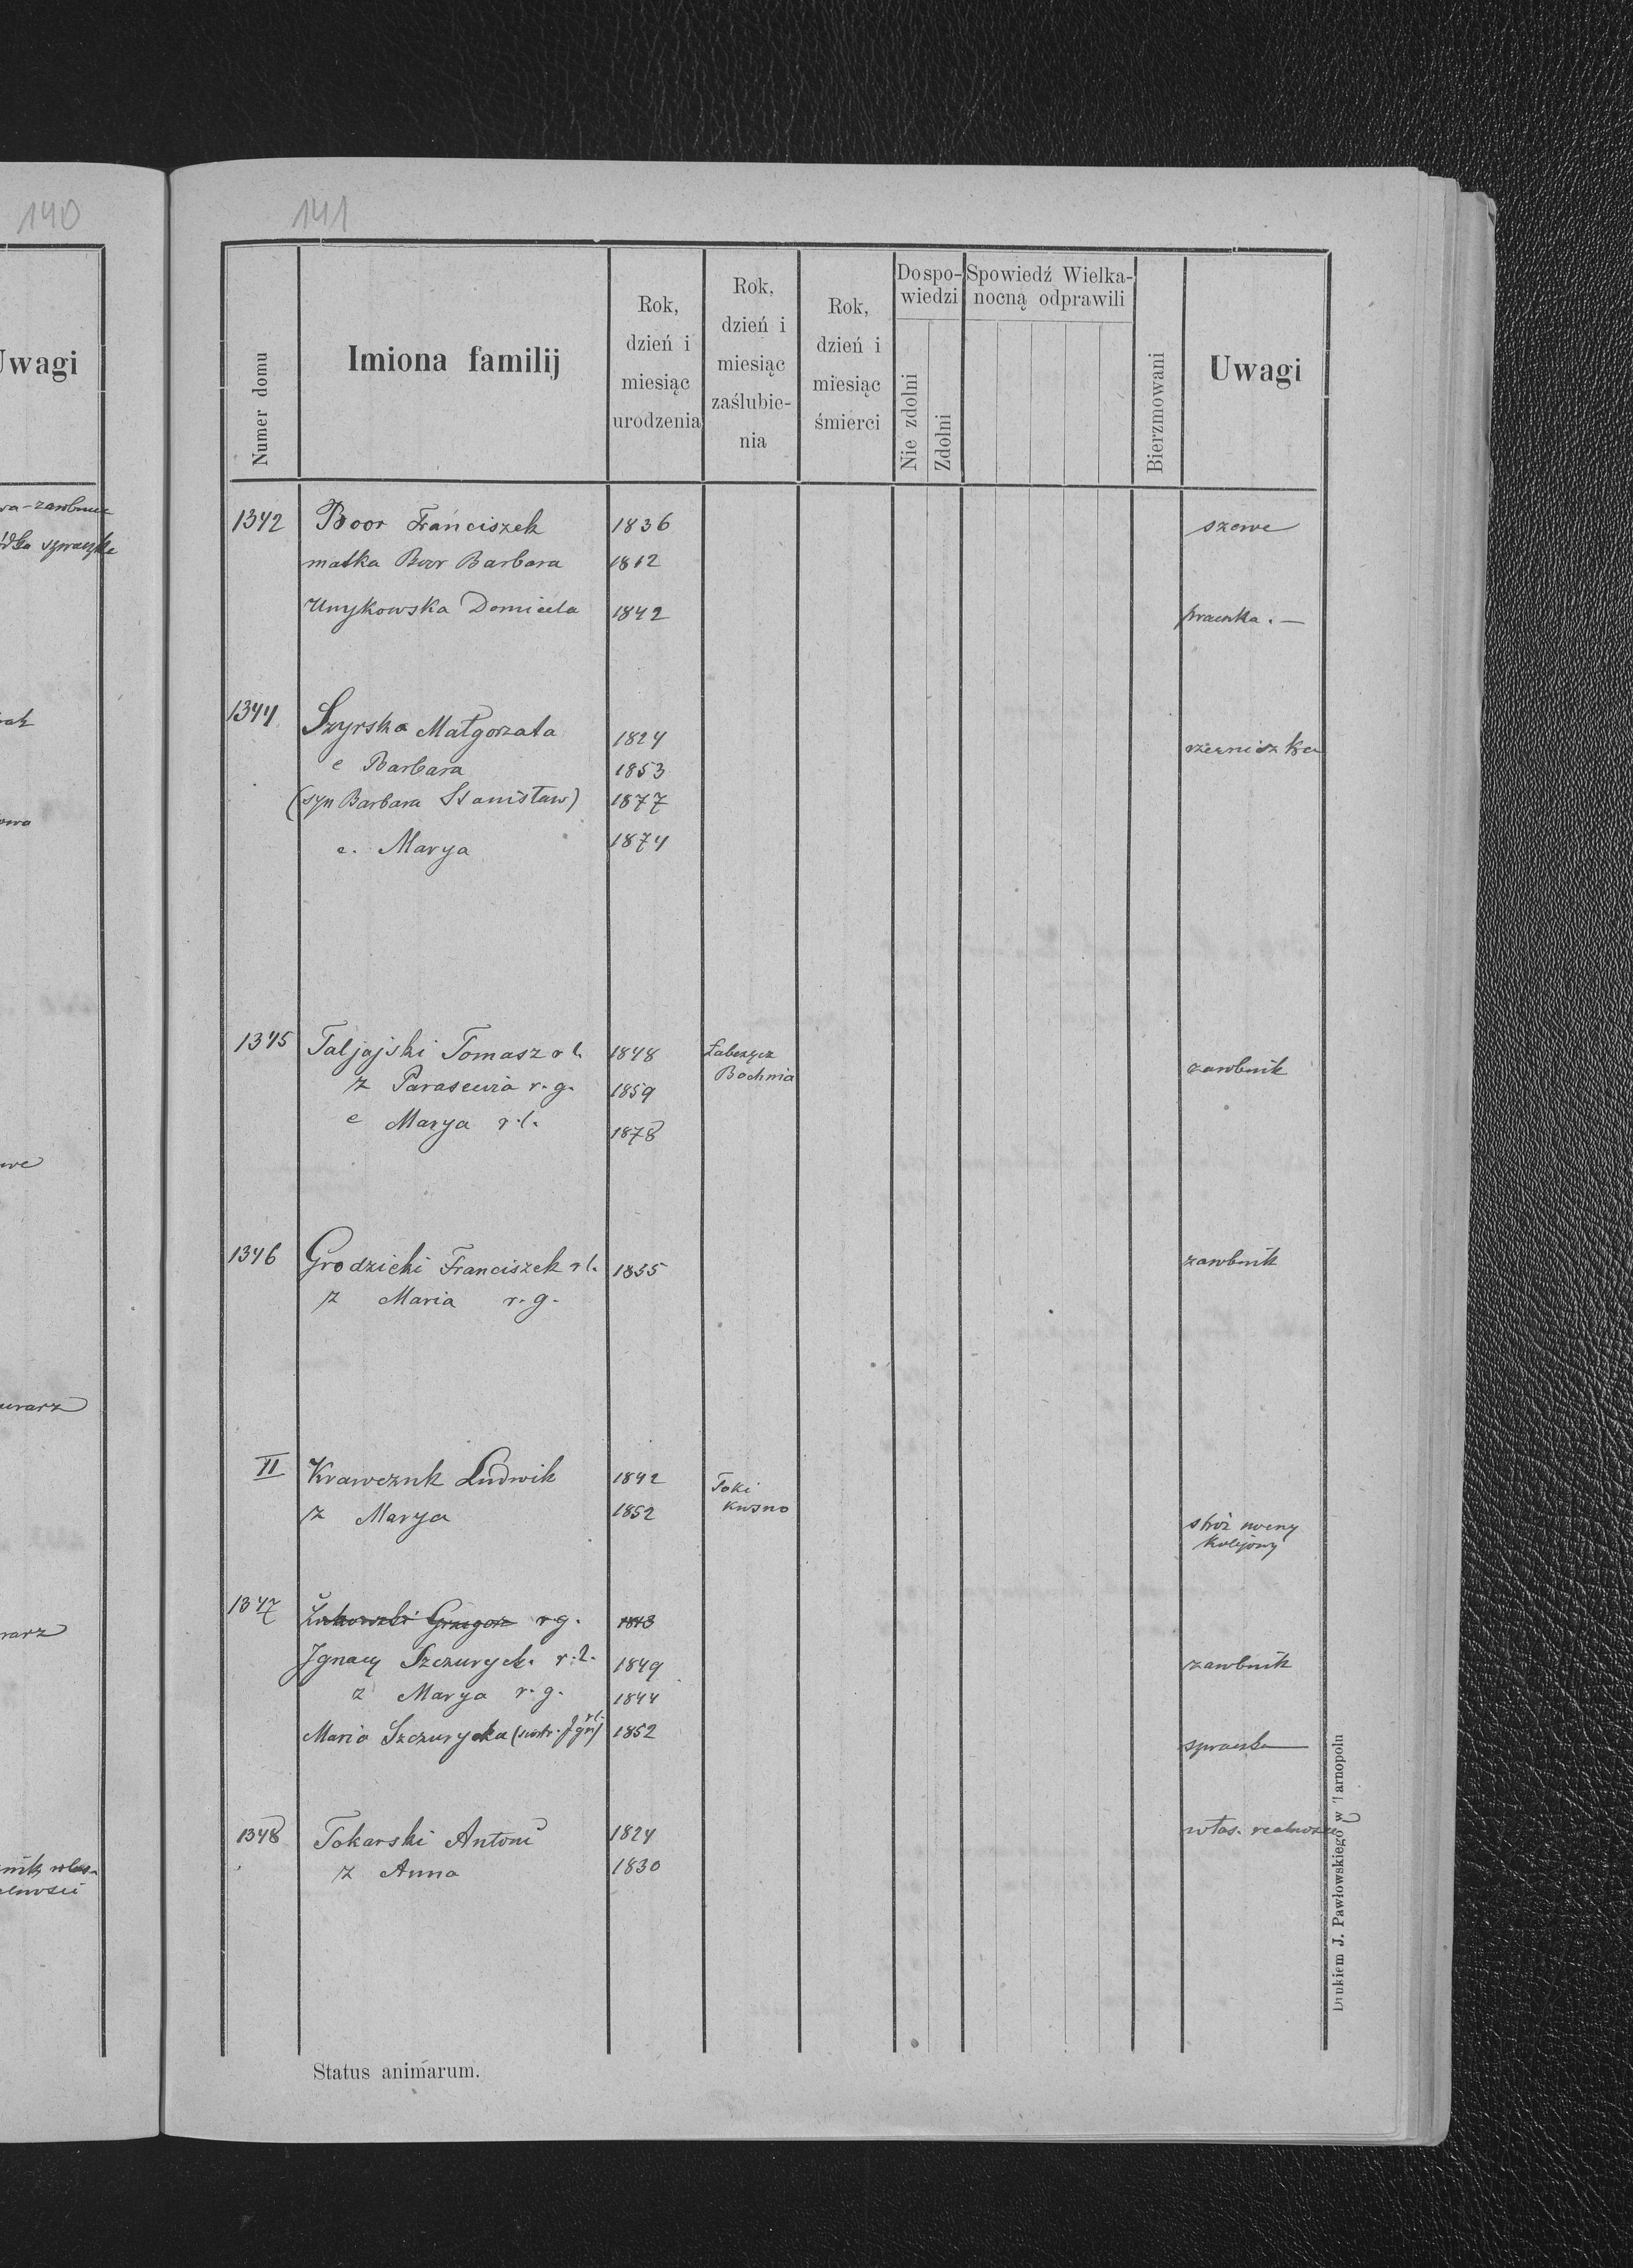 140
141
Uwagi
Numer domu
Imiona familij
Rok, dzień i miesiąc urodzenia
Rok, dzień i miesiąc zaślubienia
Rok, dzień i miesiąc śmierci
Do spowiedzi
Nie zdolni
Zdolni
Spowiedź Wielkanocną odprawili
Bierzmowani
Uwagi
1342 Boor Franciszek 1836 szewc
matka Boor Barbara 1812
Domicela 1842 praczka. —
1344 Szyrska Małgorzata 1824
c Barbara 1853
(syn Barbara Stanisław) 1877
c. Marya 1874
1345 Taljajski Tomasz r l. 1848 zarobnik
Bochnia
z Parascewia r. g. 1859
c Marya r. l. 1878
1346 Grodzicki Franciszek r l. 1835 zarobnik
z Maria r. g.
II Krawczuk Ludwik 1842 Toki
z Marya 1852
stróż nocny
kolejowy
1347 Żukowski Grzegorz r g. 1843
Ignacy Szczurycki r. l. 1849 zarobnik
z Marya r. g. 1844
Maria Szczurycka (siostr. Ign) rl. 1852
1348 Tokarski Antoni 1824 włas. realnosci
z Anna 1830
Status animarum.
Drukiem J. Pawłowskiego w Tarnopolu